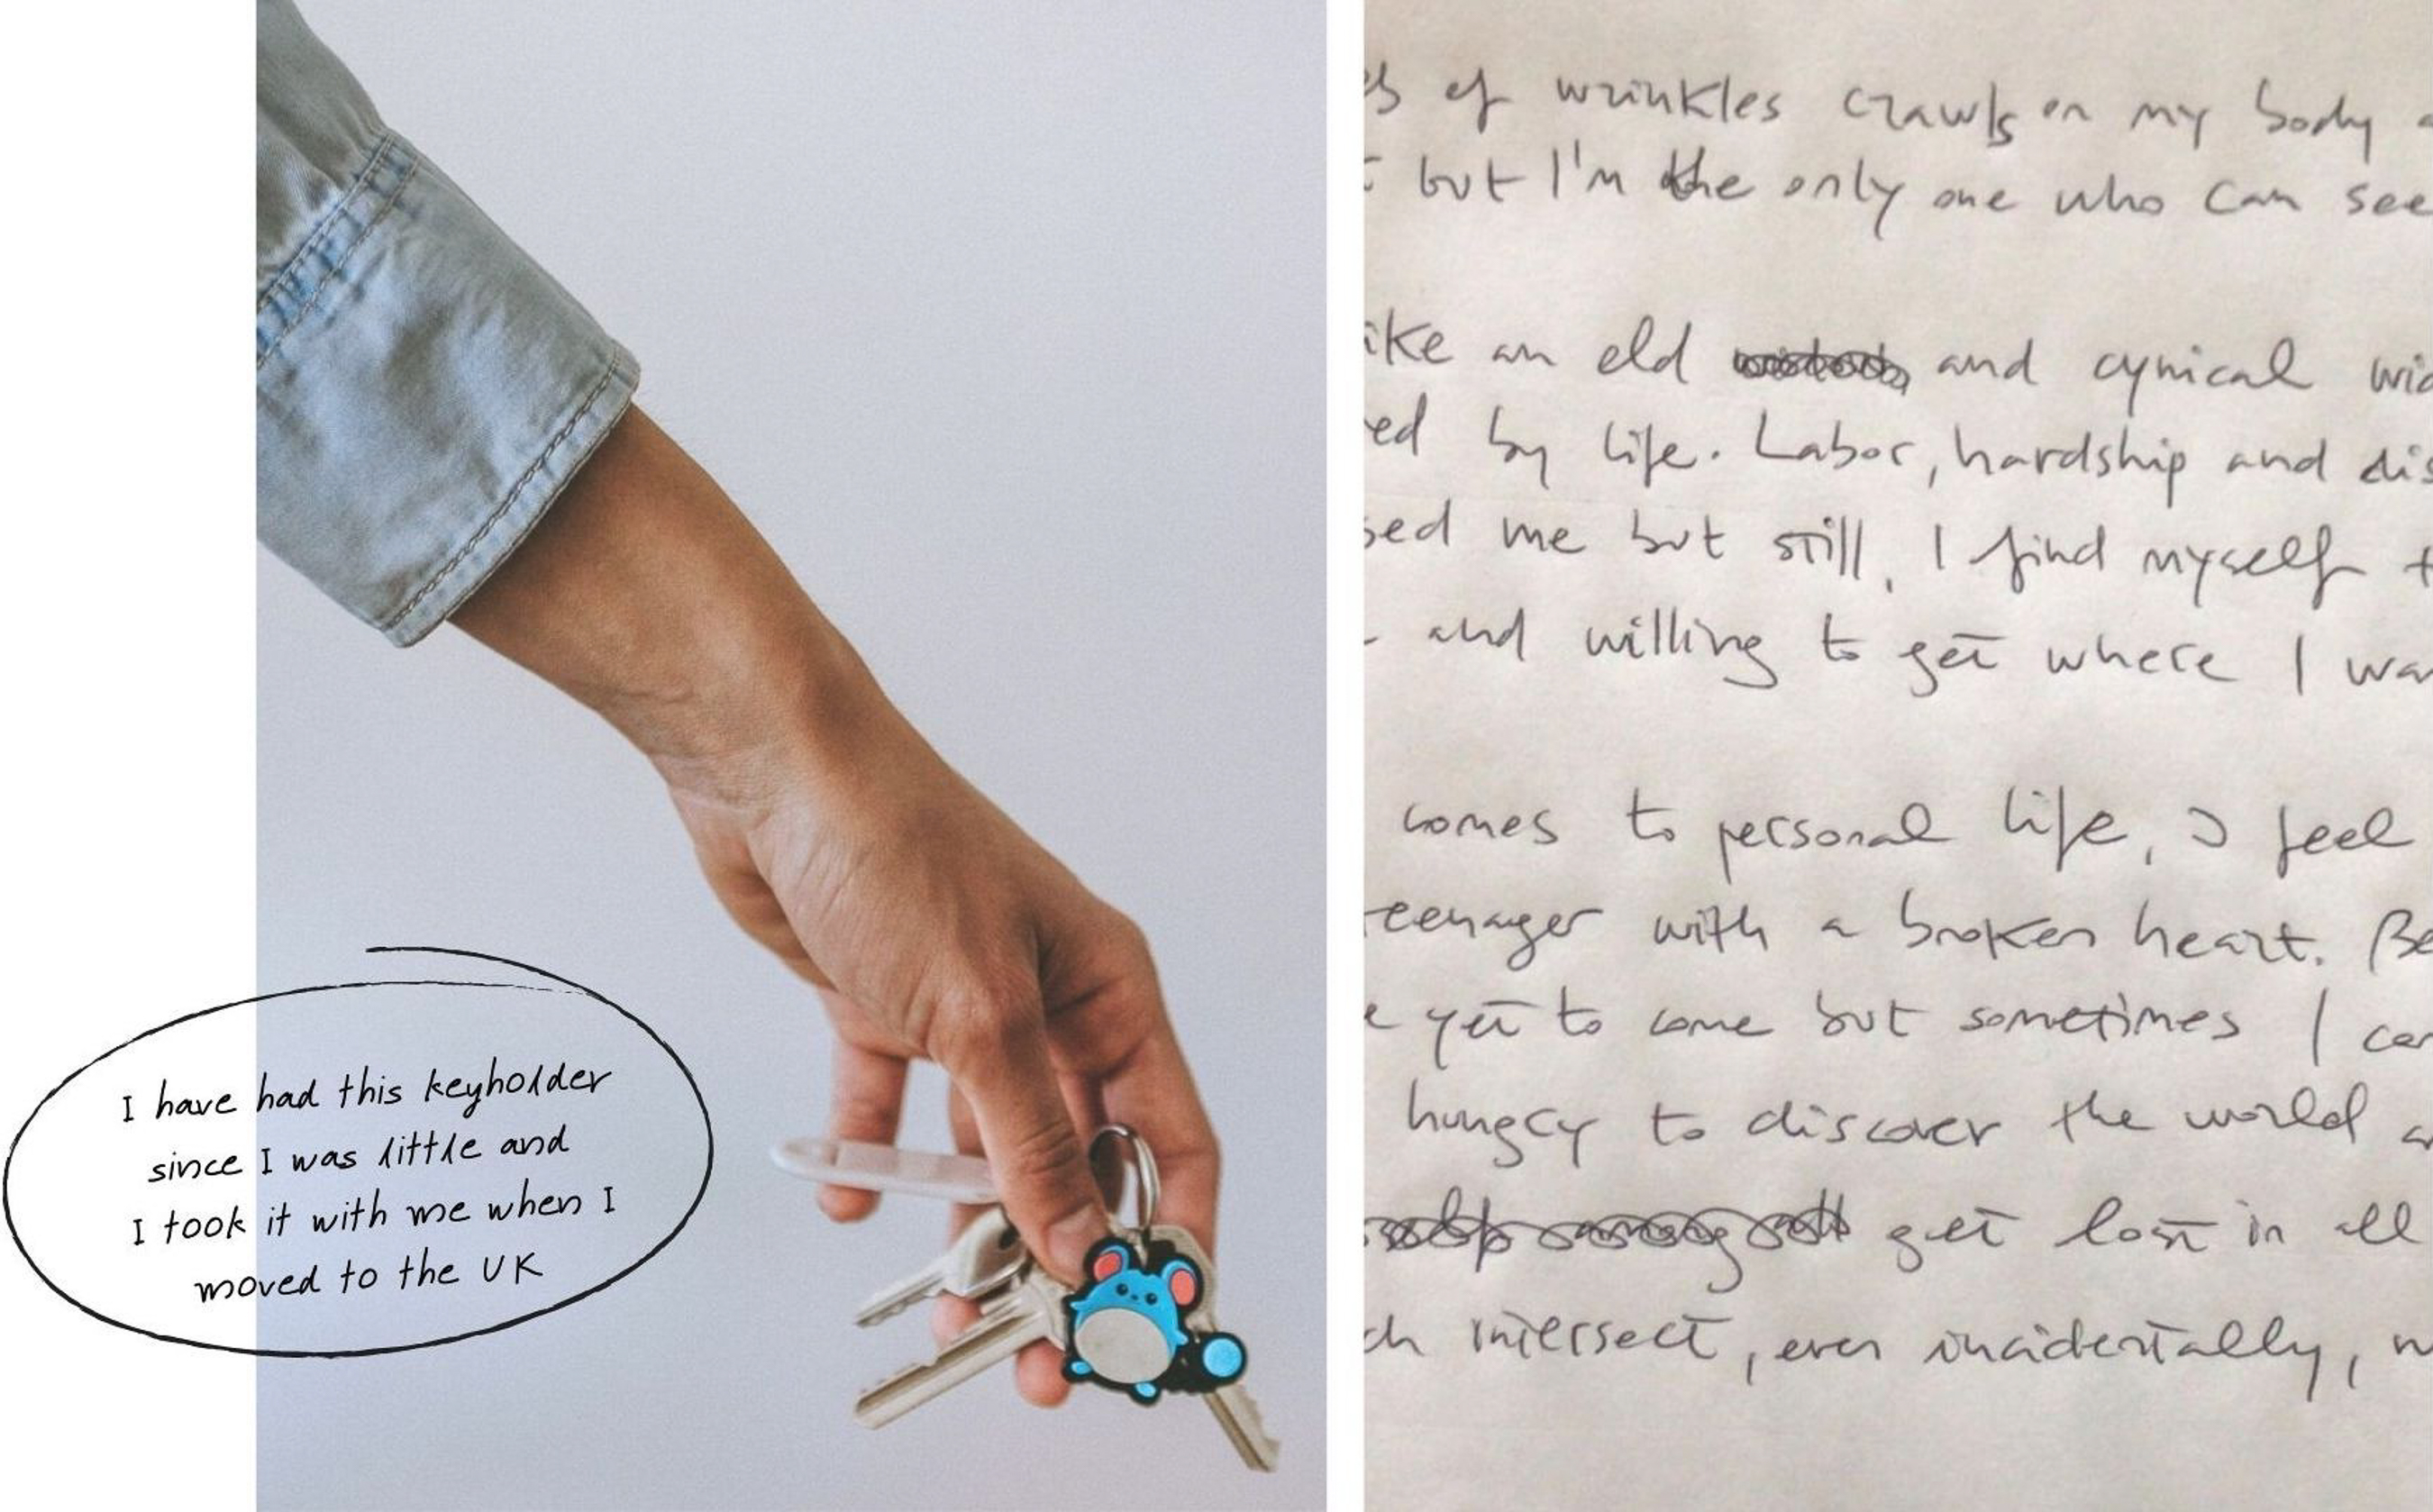 I have had this keyholder
since I was little and
I took it with me when I
moved to the UK
of wrinkles crawls on my body
but I'm the only one who can see
an old and cynical
by life. Labor, hardship and
me but still, I find myself
and willing to get where I
comes to personal life, I feel
with a broken heart.
yet to come but sometimes I
hungry to discover the world
get lost in all
intersect, even incidentally,